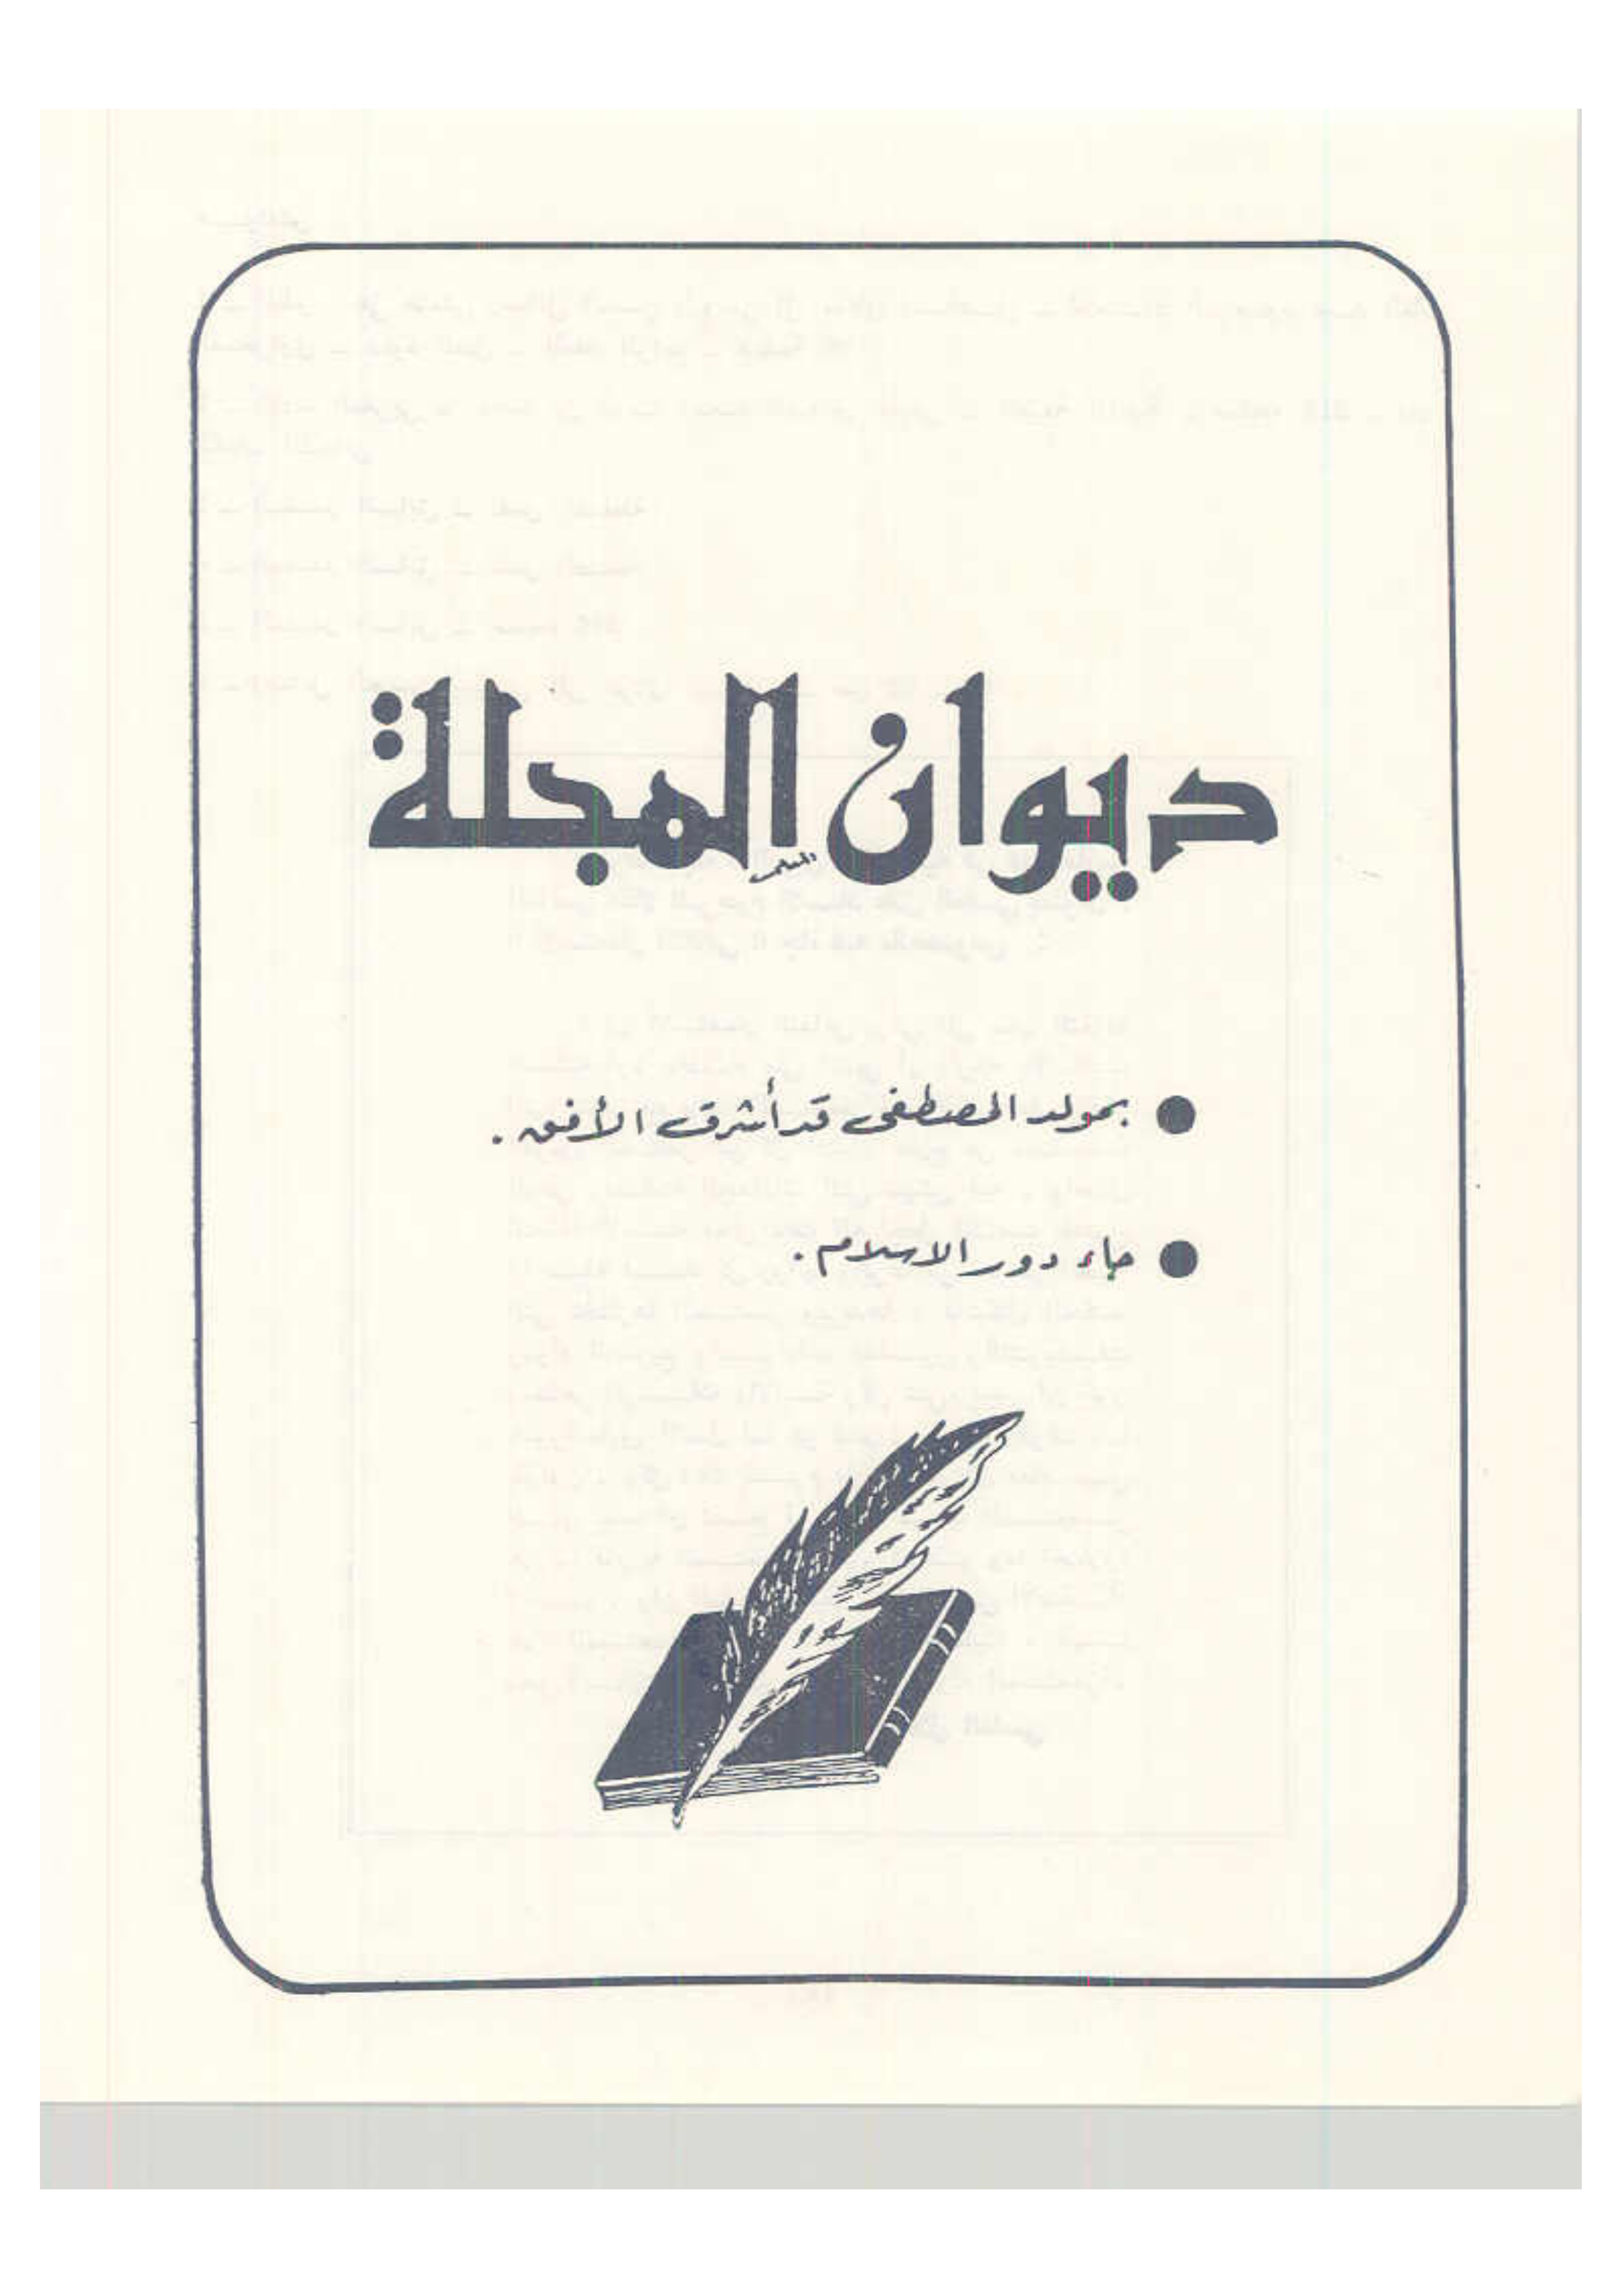 ديوان المجلة
● بمولد المصطفى قد أشرق الأفق .
● جاء دور الاسلام .